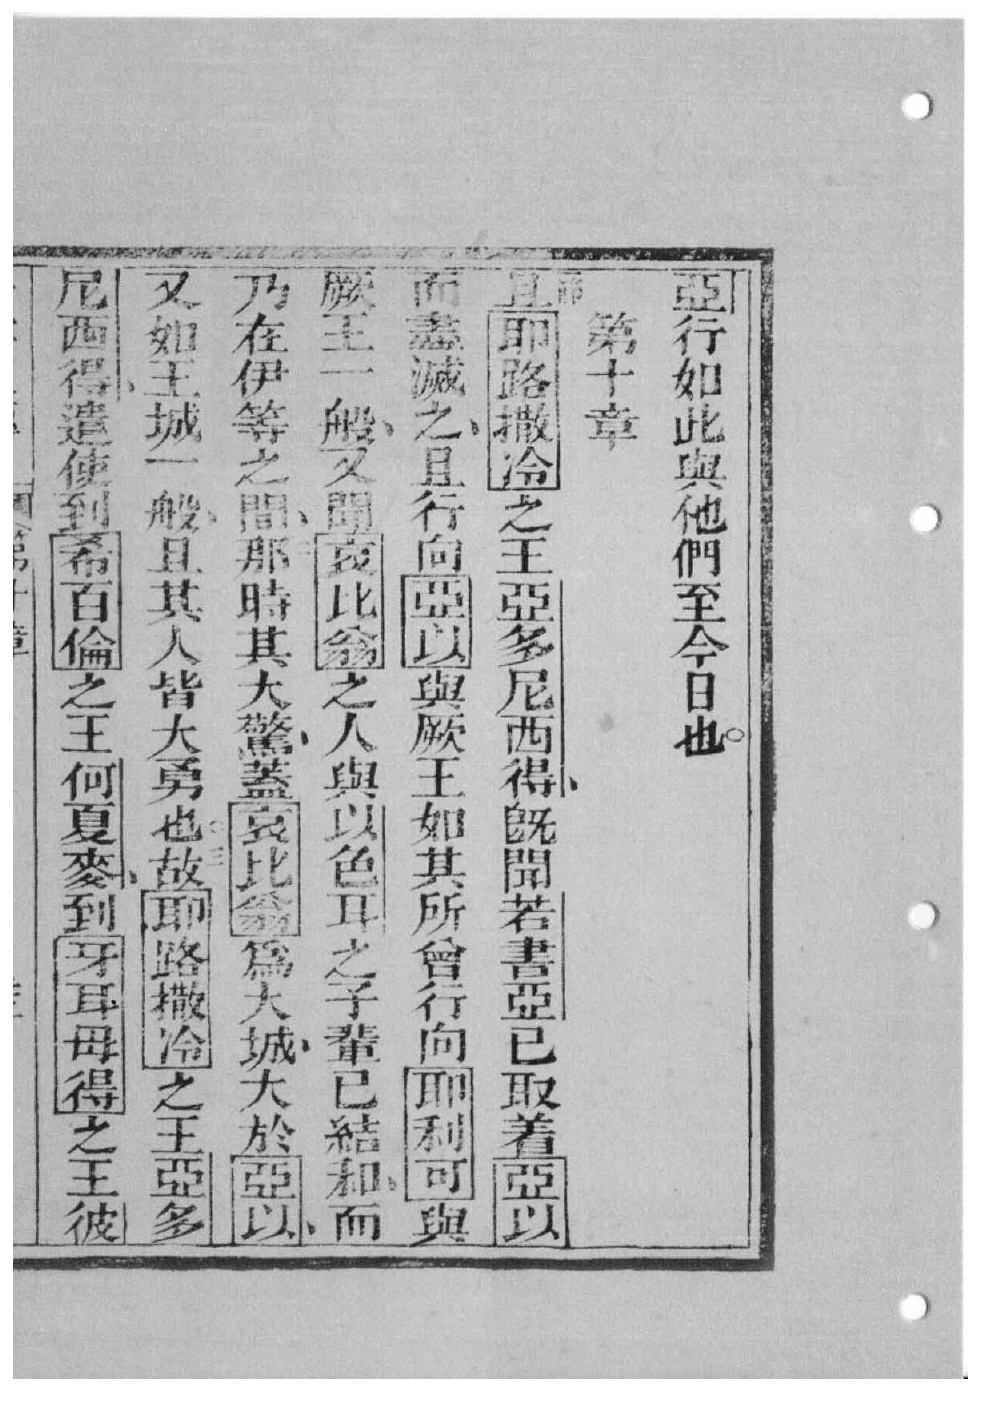 亞行如此與他們至今日也。
第十章
且耶路撒冷之王亞多尼西得、既聞若書亞已取着亞以
而盡滅之、且行向亞以與厥王如其所曾行向耶利可與
厥王一般、又聞哀比翁之人與以色耳之子輩已結和、而
乃在伊等之間、二那時其大驚、蓋哀比翁為大城、大於亞以、
又如王城一般、且其人皆大勇也。三故耶路撒冷之王亞多
尼西得、遣使到希百倫之王何夏麥、到牙耳毋得之王彼
第十章